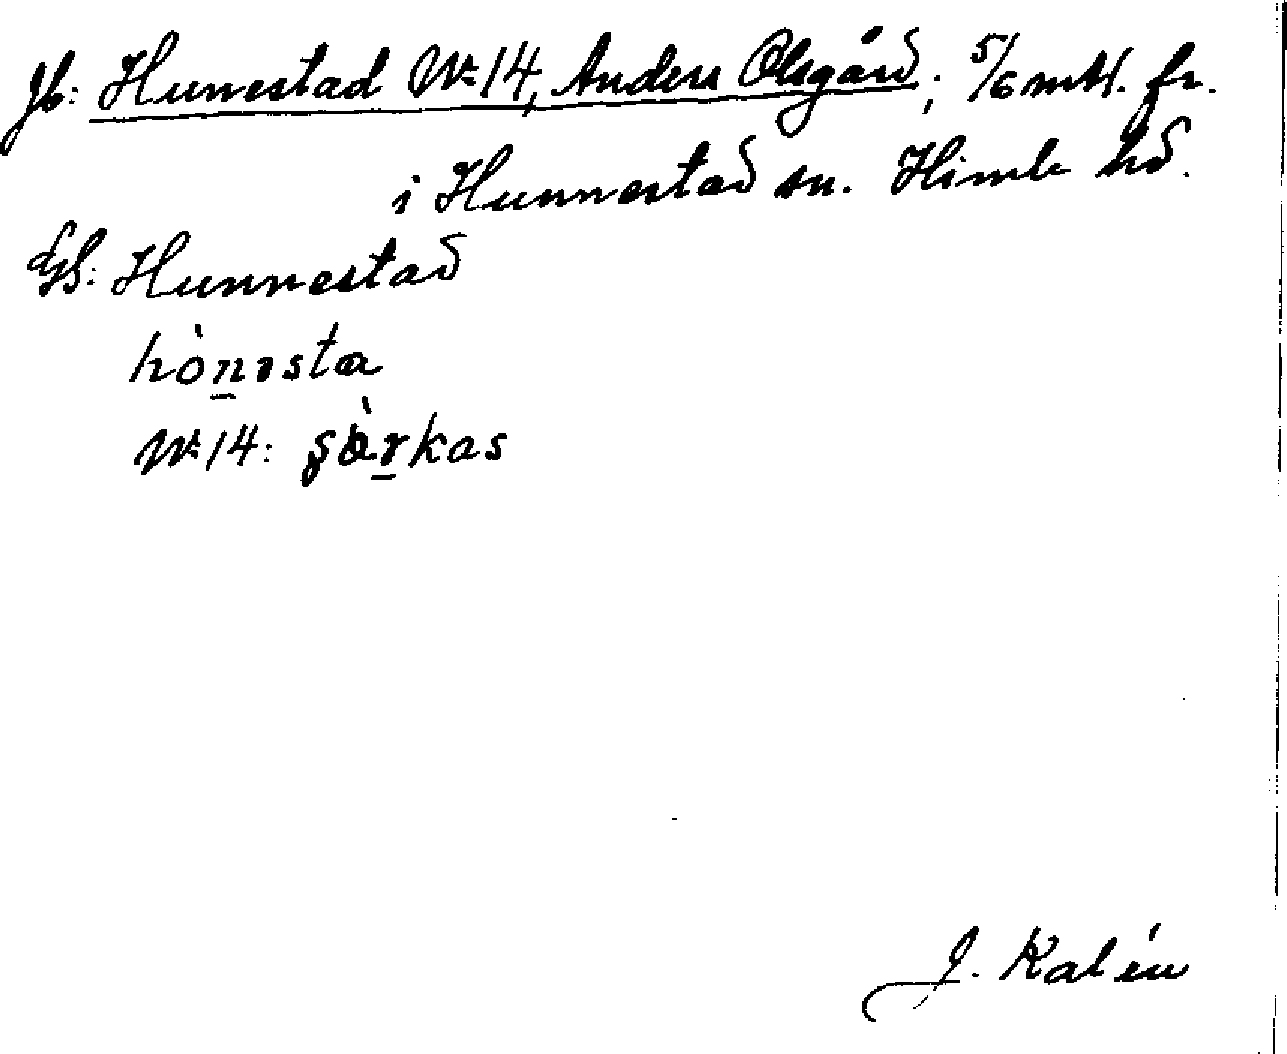 Jb: Hunestad No 14, Anders Olsgård; 5/6 mtl. fr.
i Hunnestad sn. Himle hd.
GS: Hunnestad
hònısta
No 14: şàrkas
J. Kalén